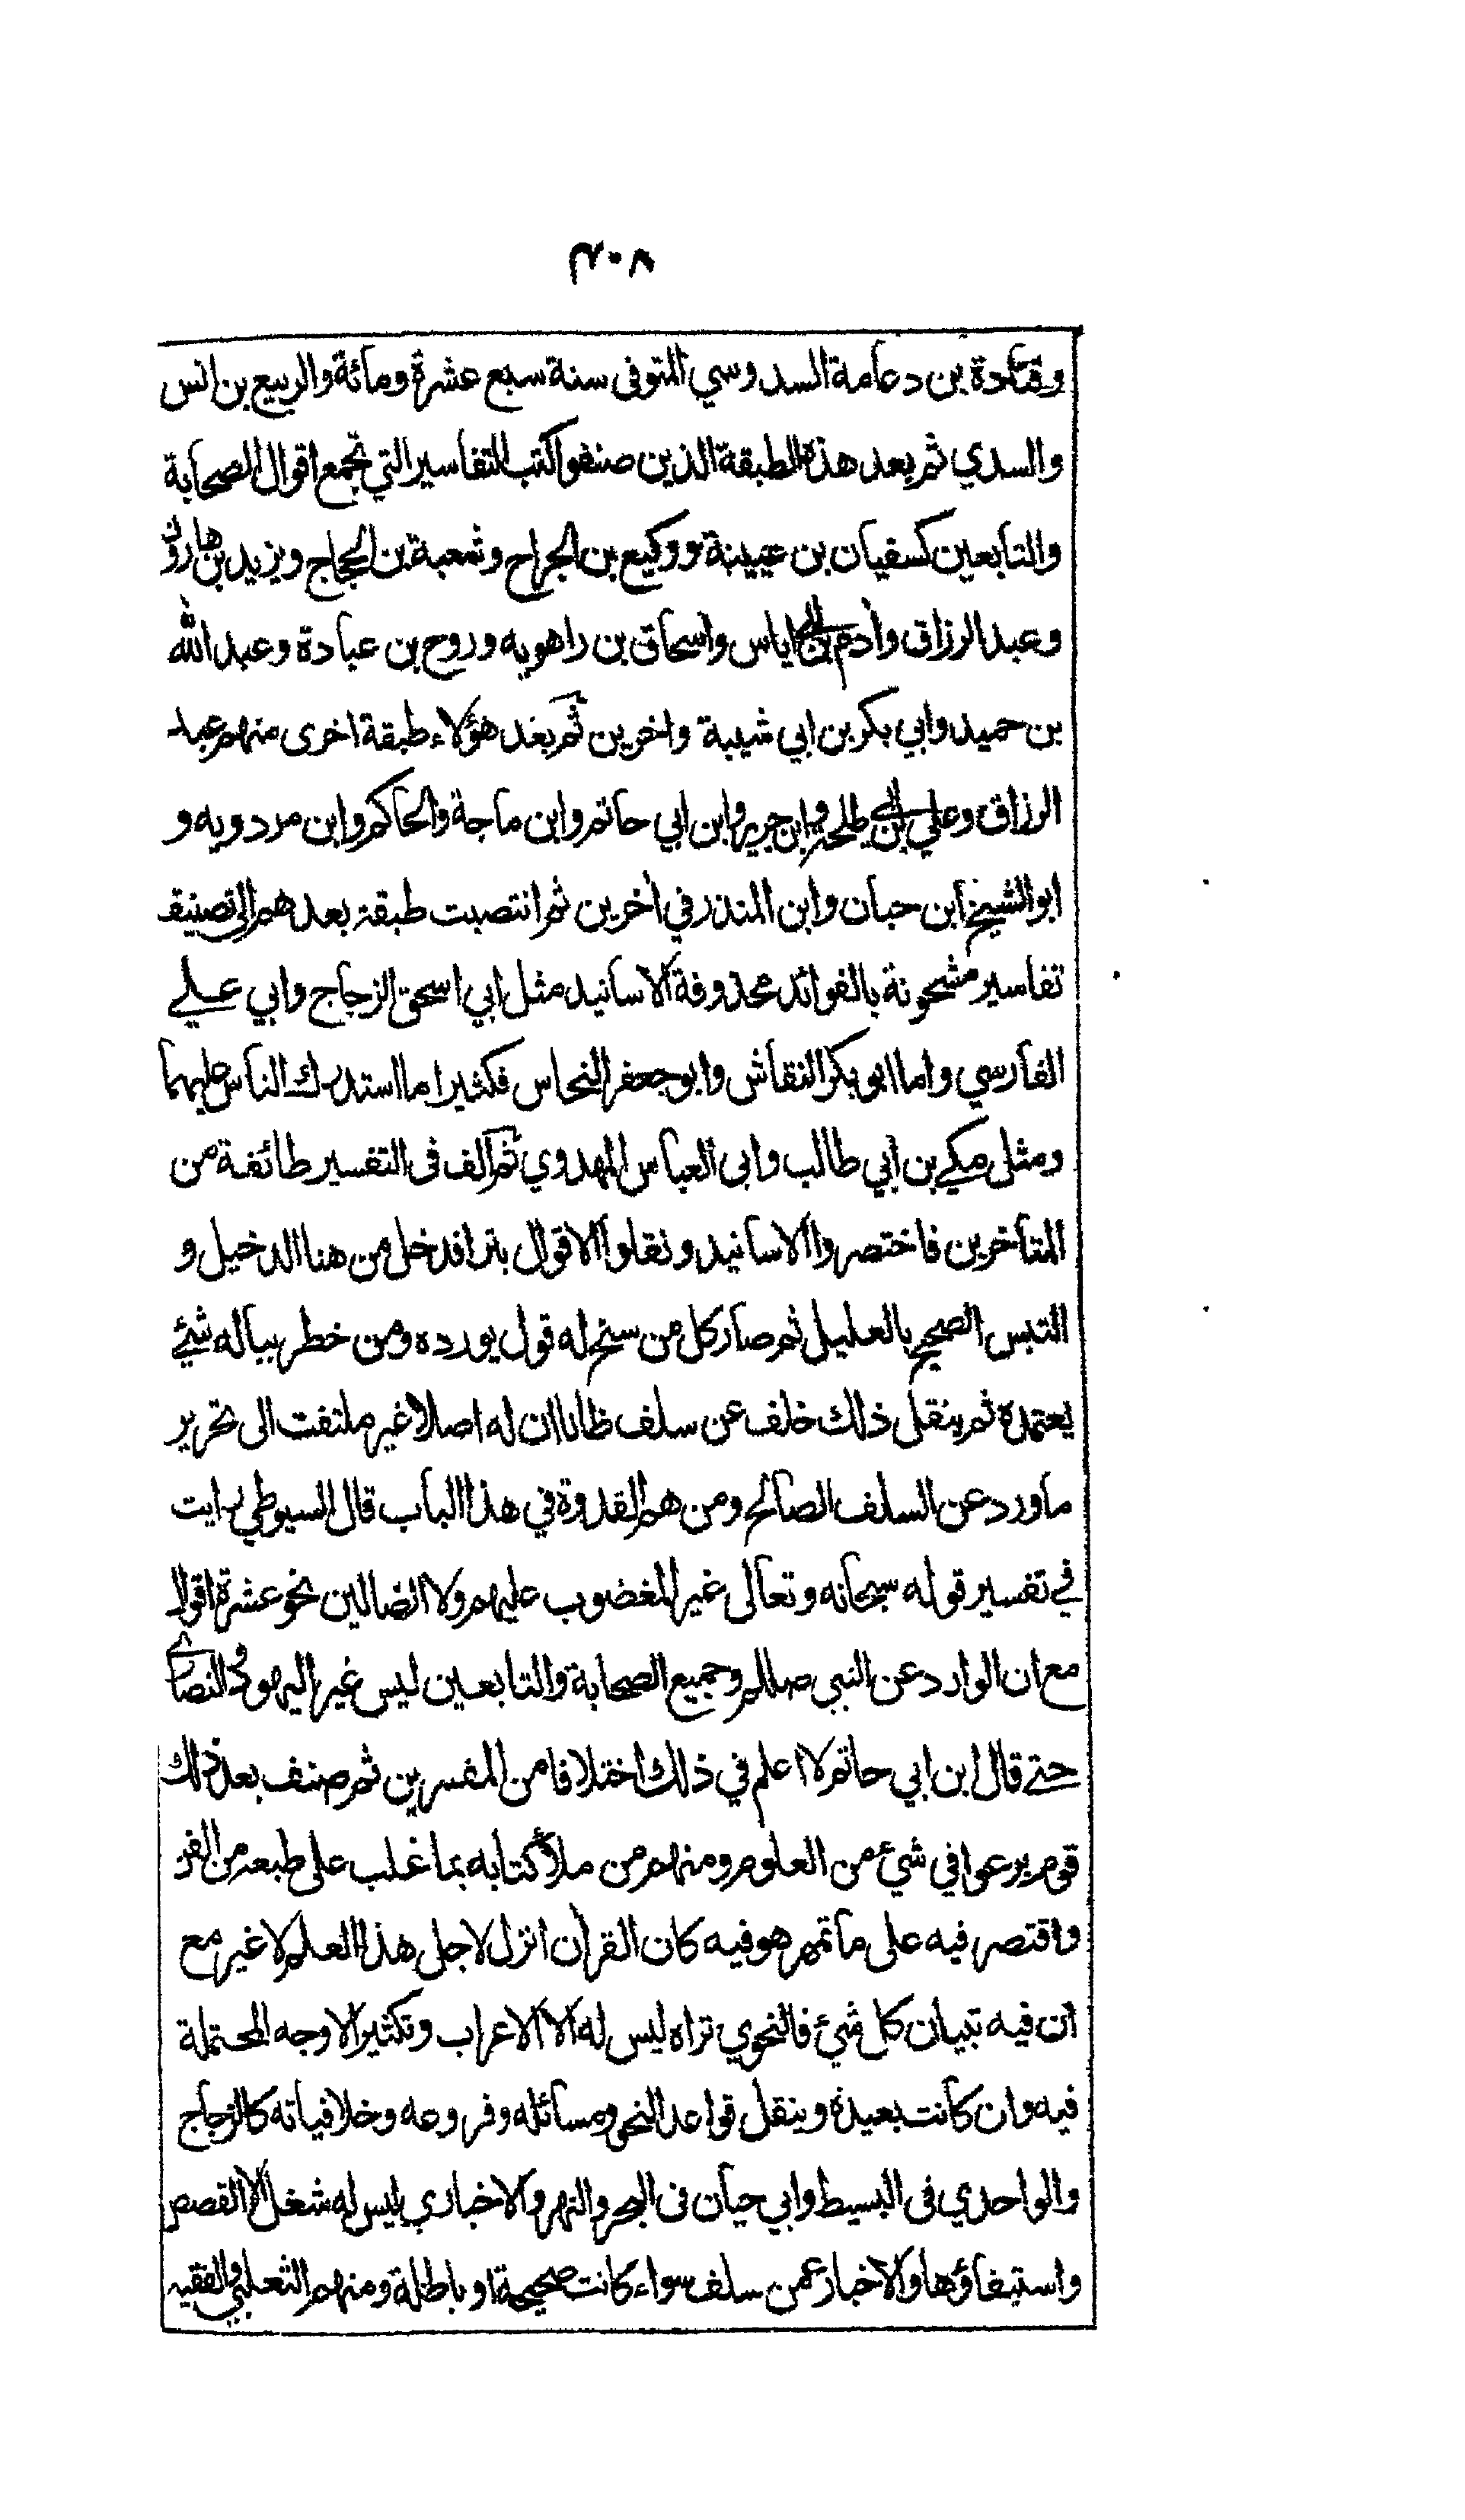 ٣٠٧
وقتادة بن دعامة السدوسي المتوفى سنة سبع عشرة ومائة والربيع بن انس
والسدي ثم بعد هذه الطبقة الذين صنفوا كتب التفاسير التي تجمع اقوال الصحابة
والتابعين كسفيان بن عيينة ووكيع بن الجراح وشعبة بن الحجاج ويزيد بن هارون
وعبد الرزاق وأدم بن ابي اياس واسحاق بن راهويه وروح بن عبادة وعبد الله
بن حميد وابي بكر بن ابي شيبة واخرين ثم بعد هؤلاء طبقة اخرى منهم عبد
الرزاق وعلي بن ابي طلحة وابن جرير وابن ابي حاتم وابن ماجة والحاكم وابن مردويه و
ابو الشيخ ابن حبان وابن المنذر في أخرين ثم انتصبت طبقة بعدهم الى تصنيف
تفاسير مشحونة بالفوائد محذوفة الاسانيد مثل ابي اسحق الزجاج وابي علي
الفارسي واما ابو بكر النقاش وابو جعفر النحاس فكثيرا ما استدرك الناس عليهما
ومثل مكي بن ابي طالب وابى العباس المهدوي ثم الف فى التفسير طائفة من
المتأخرين فاختصروا الاسانيد ونقلوا الاقوال بترا فدخل من هنا الدخيل و
التبس الصحيح بالعليل ثم صار كل من سنح له قول يورده ومن خطر بباله شئ
يعتمده ثم ينقل ذلك خلف عن سلف ظانا ان له اصلا غير ملتفت الى تحرير
ما ورد عن السلف الصالح ومن هم القدوة في هذا الباب قال السيوطي رايت
في تفسير قوله سبحانه وتعالى غير المغضوب عليهم ولا الضالين نحو عشرة اقوال
مع ان الوارد عن النبي صللم وجميع الصحابة والتابعين ليس غير اليهود والنصارى
حتى قال ابن ابي حاتم لا اعلم في ذلك اختلافا من المفسرين ثم صنف بعد ذلك
قوم برعوا في شيء من العلوم ومنهم من ملأ كتابه بما غلب على طبعه من الفن
واقتصر فيه على ما تمهر هو فيه كان القرأن انزل لاجل هذا العلم لا غير مع
ان فيه تبيان كل شيء فالنحوي تراه ليس له الا الاعراب وتكثير الاوجه المحتملة
فيه وان كانت بعيدة وينقل قواعد النحو ومسائله وفروعه وخلافياته كالزجاج
والواحدي فى البسيط وابي حيان فى البحر والنهر والاخباري ليس له شغل الا القصص
واستيفاؤها والاخبار عمن سلف سواء كانت صحيحة او باطلة ومنهم الثعلبي والفقيه